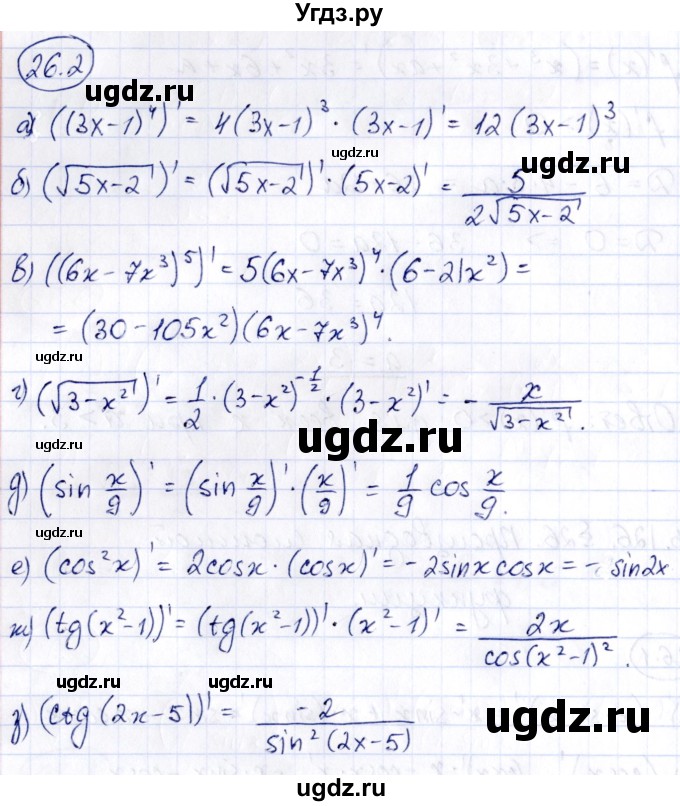 Угдз.ру
26.2
ugdz.ru
а) ((3x-1)⁴)' = 4(3x-1)³ · (3x-1)' = 12(3x-1)³
ugdz.ru
ugdz.ru
б) (√(5x-2))' = (√(5x-2))' · (5x-2)' = 5/(2√(5x-2))
в) ((6x - 7x³)⁵)' = 5(6x - 7x³)⁴ · (6 - 21x²) =
= (30 - 105x²)(6x - 7x³)⁴.
ugdz.ru
г) (√(3-x²))' = 1/2 · (3-x²)^(-1/2) · (3-x²)' = - x/√(3-x²).
ugdz.ru
ugdz.ru
д) (sin x/9)' = (sin x/9)' · (x/9)' = 1/9 cos x/9.
ugdz.ru
ugdz.ru
е) (cos²x)' = 2cosx · (cosx)' = -2sinx cosx = - sin2x
ugdz.ru
ж) (tg(x²-1))' = (tg(x²-1))' · (x²-1)' = 2x/cos(x²-1)².
ugdz.ru
ugdz.ru
ugdz.ru
з) (ctg(2x-5))' = -2/sin²(2x-5)
ugdz.ru